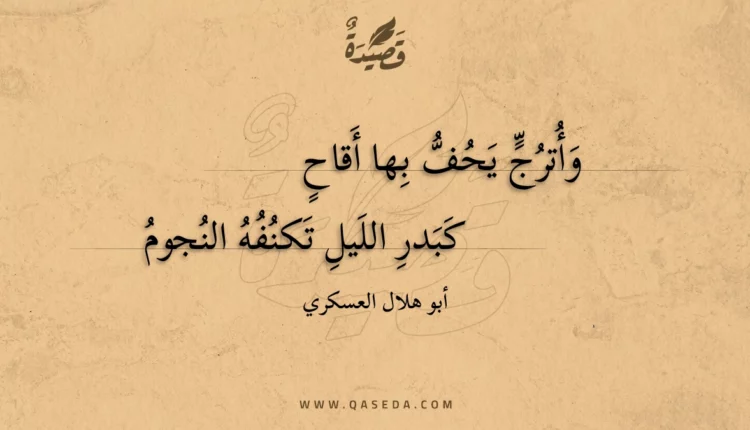 قَصِيْدَةٌ
وَأُترُجٍّ يَحُفُّ بِها أَقاحٍ
كَبَدرِ اللَيلِ تَكنُفُهُ النُجومُ
أبو هلال العسكري
WWW.QASEDA.COM